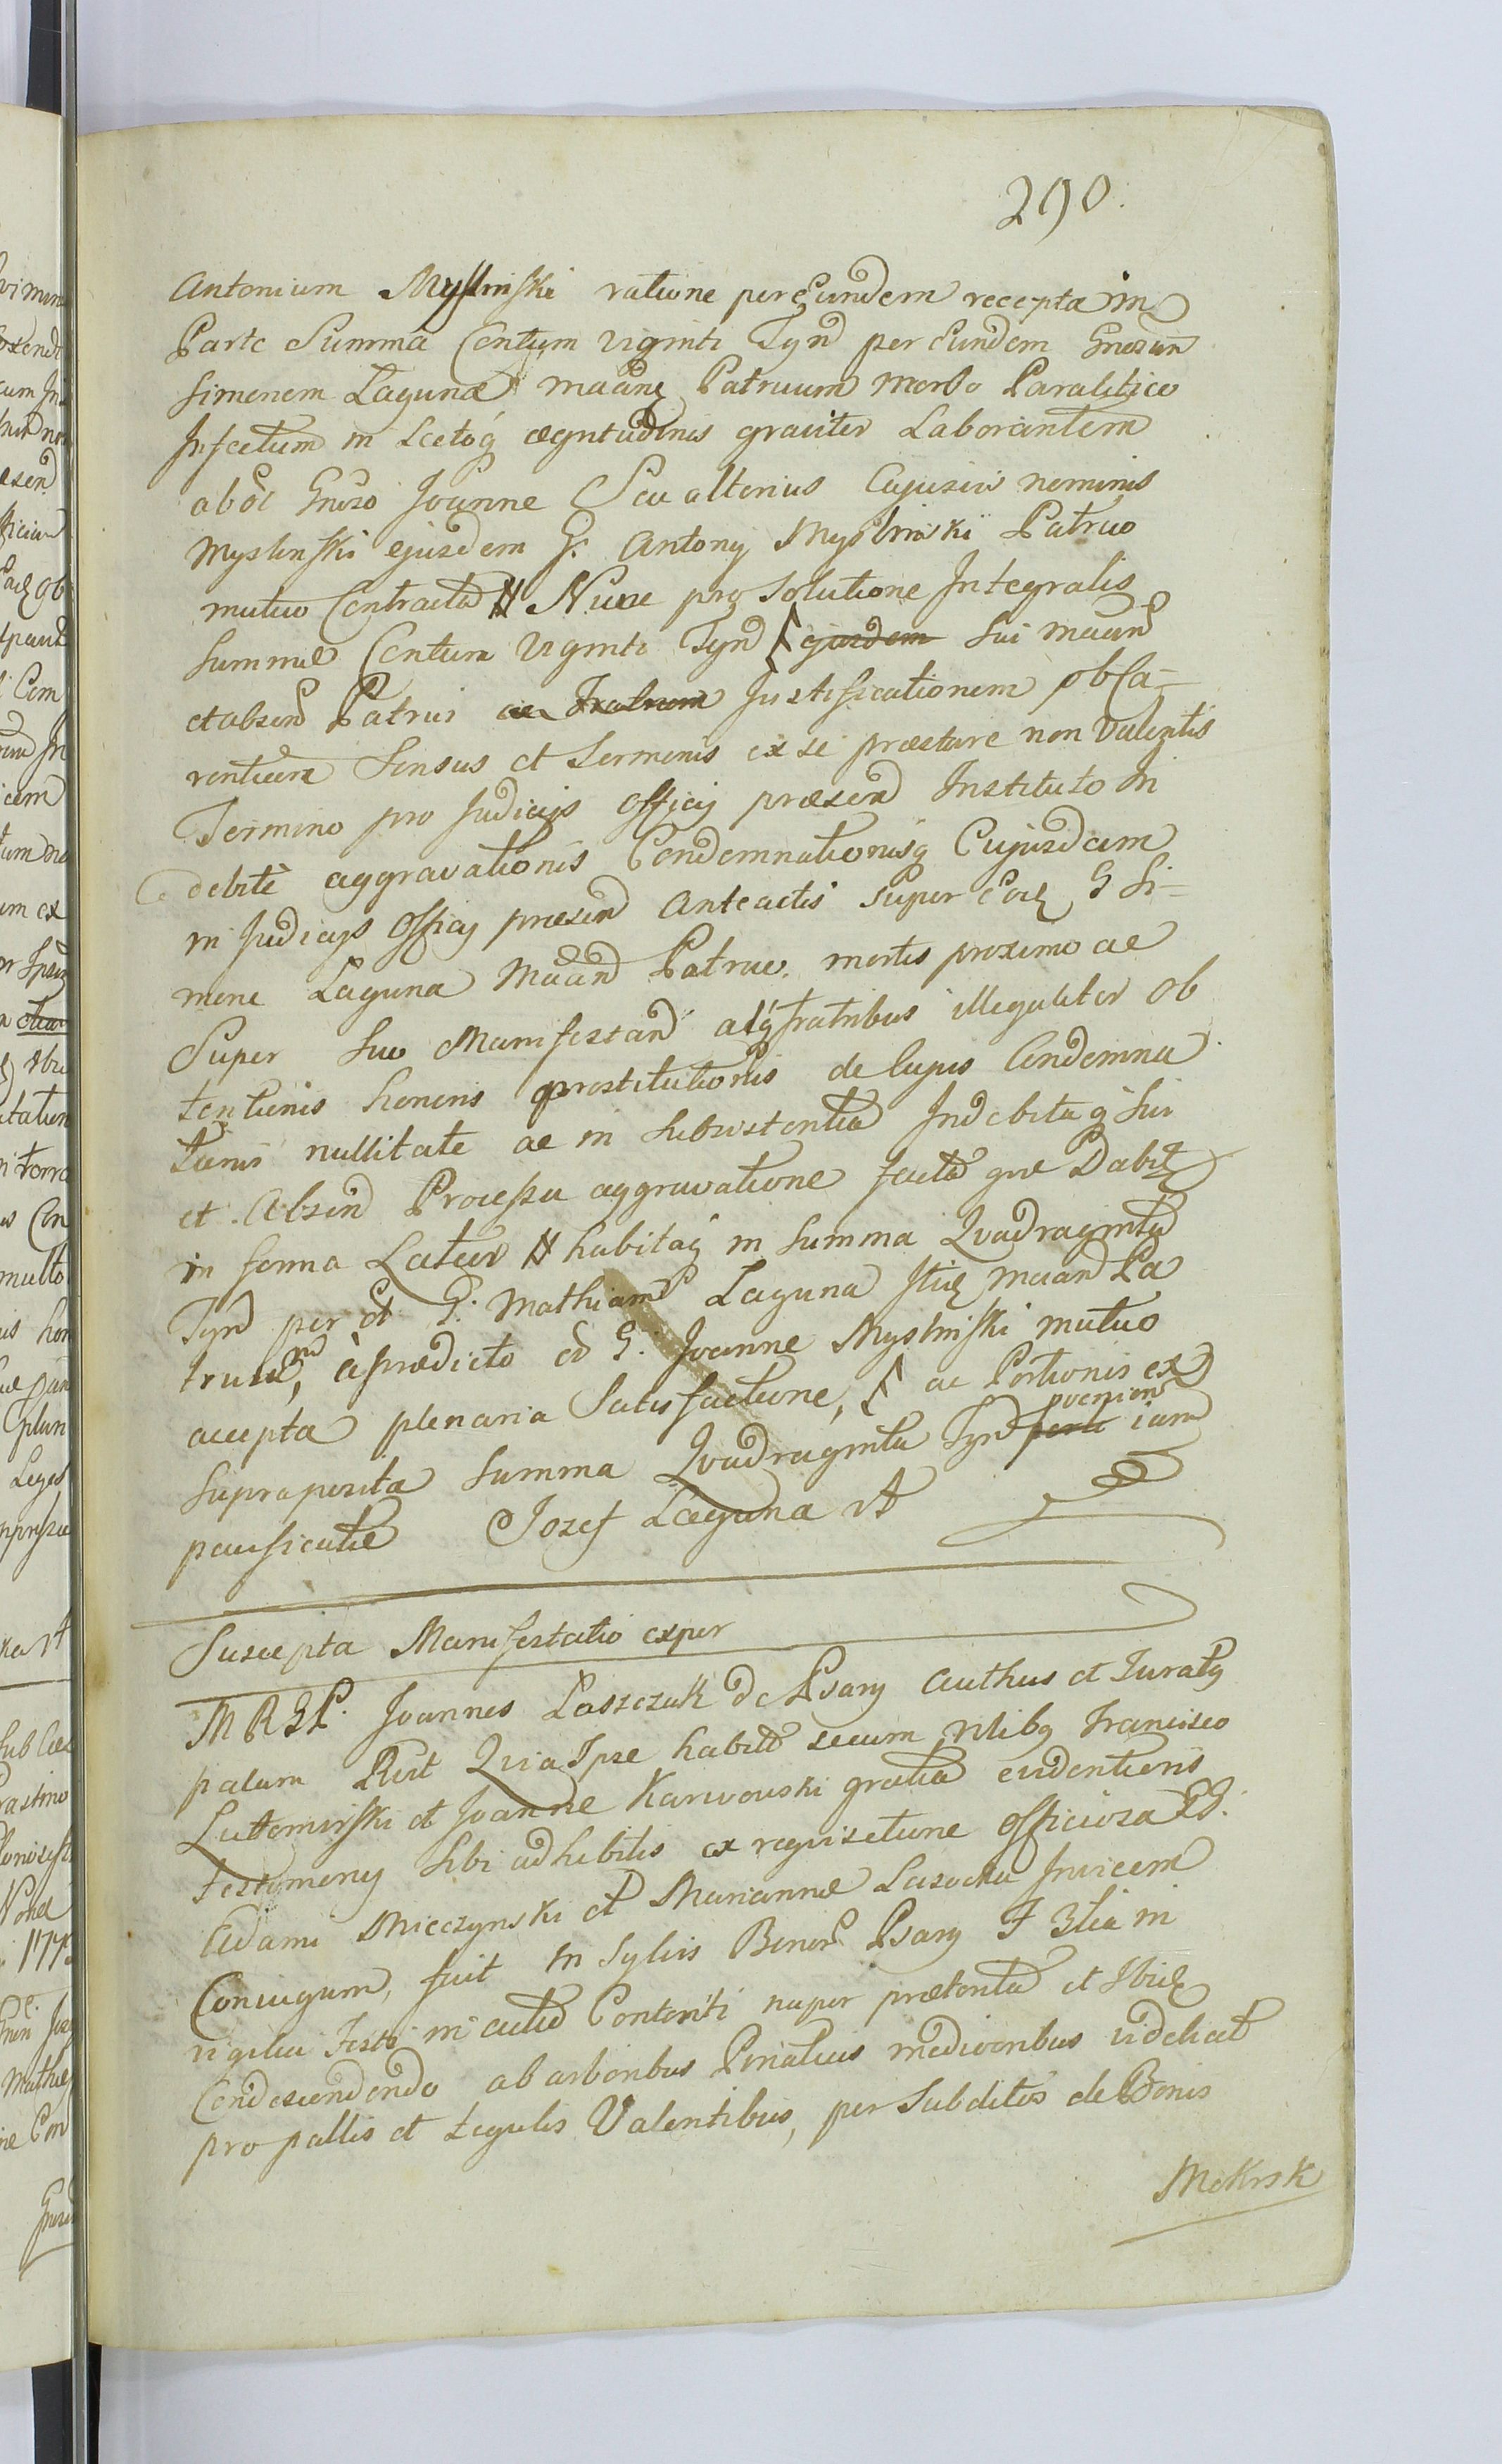 290.
Antonium Myslinski ratione per Eundem recepta in
Parte Summa Centum viginti Tyn̄ per Eundem Gnosum
Simonem Laguna maanq Patruum morbo Paralitico
Infectum in Lectoq aegritudinis graviter Laborantem
ab oc Gnoso Joanne Seu alterius Cujusvis nominis
Myslinski ejusdem G. Antonij Myslinski Patruo
mutuo Contracta # Nunc pro Solutione Integralis
Summae Centum Viginti Tyn̄ ejusdem sui maan̄
et absen̄ Patrui ac Fratrum Justificationem ob Ca-
rentiam Sensus et Sermonis ex se praestare non Valentis
Termino pro Judicijs Officij praesen̄ Instituto In
debite aggravationis Condemnationisq Cujusdam
in Judicijs Officij praesen̄ anteactis super Eod G Si-
mone Laguna Maan̄ Patruo mortis proximo ac
Super Suo Manifestan̄ atq fratribus illegaliter ob
tentionis honoris prostitutionis de lapis Condemna
tionis nullitate ac in Subsistentia Indebitaq sui
et Absen̄ Processu aggravatione facta
in forma Latiori # habitaq in Summa Quadraginta
Tyn̄ per G. Mathiam Laguna maan̄ Pa
truum, a praedicto G. Joanne Myslinski mutuo
accepta plenaria Satisfactione, ac Portionis ex
supraposita Summa Quadraginta Tyn̄ iam
pacificatie Jozef Laguna
Suscepta Manifestatio exper
M R G P. Joannes Laszczuk de Psary authus et Juratq
palam Quia Ipse habita secum Nlibq Francisco
Lutomirski et Joanne Karwowski gratia evidentioris
testimonij sibi adhibitis ex requisitione officiosa GG.
Adami Mieczynski et Marianna Lasocka Invicem
Coniugum, fuit in Sylvis Bonor Psary F 3tia in
vigilia Festi in actu Contenti nuper praeterita et Ibiq
Condescendendo ab arboribus Pinaticis mediocribus videlicet
pro pallis et tegulis Valentibus, per Subditos de Bonis
Mokrsk